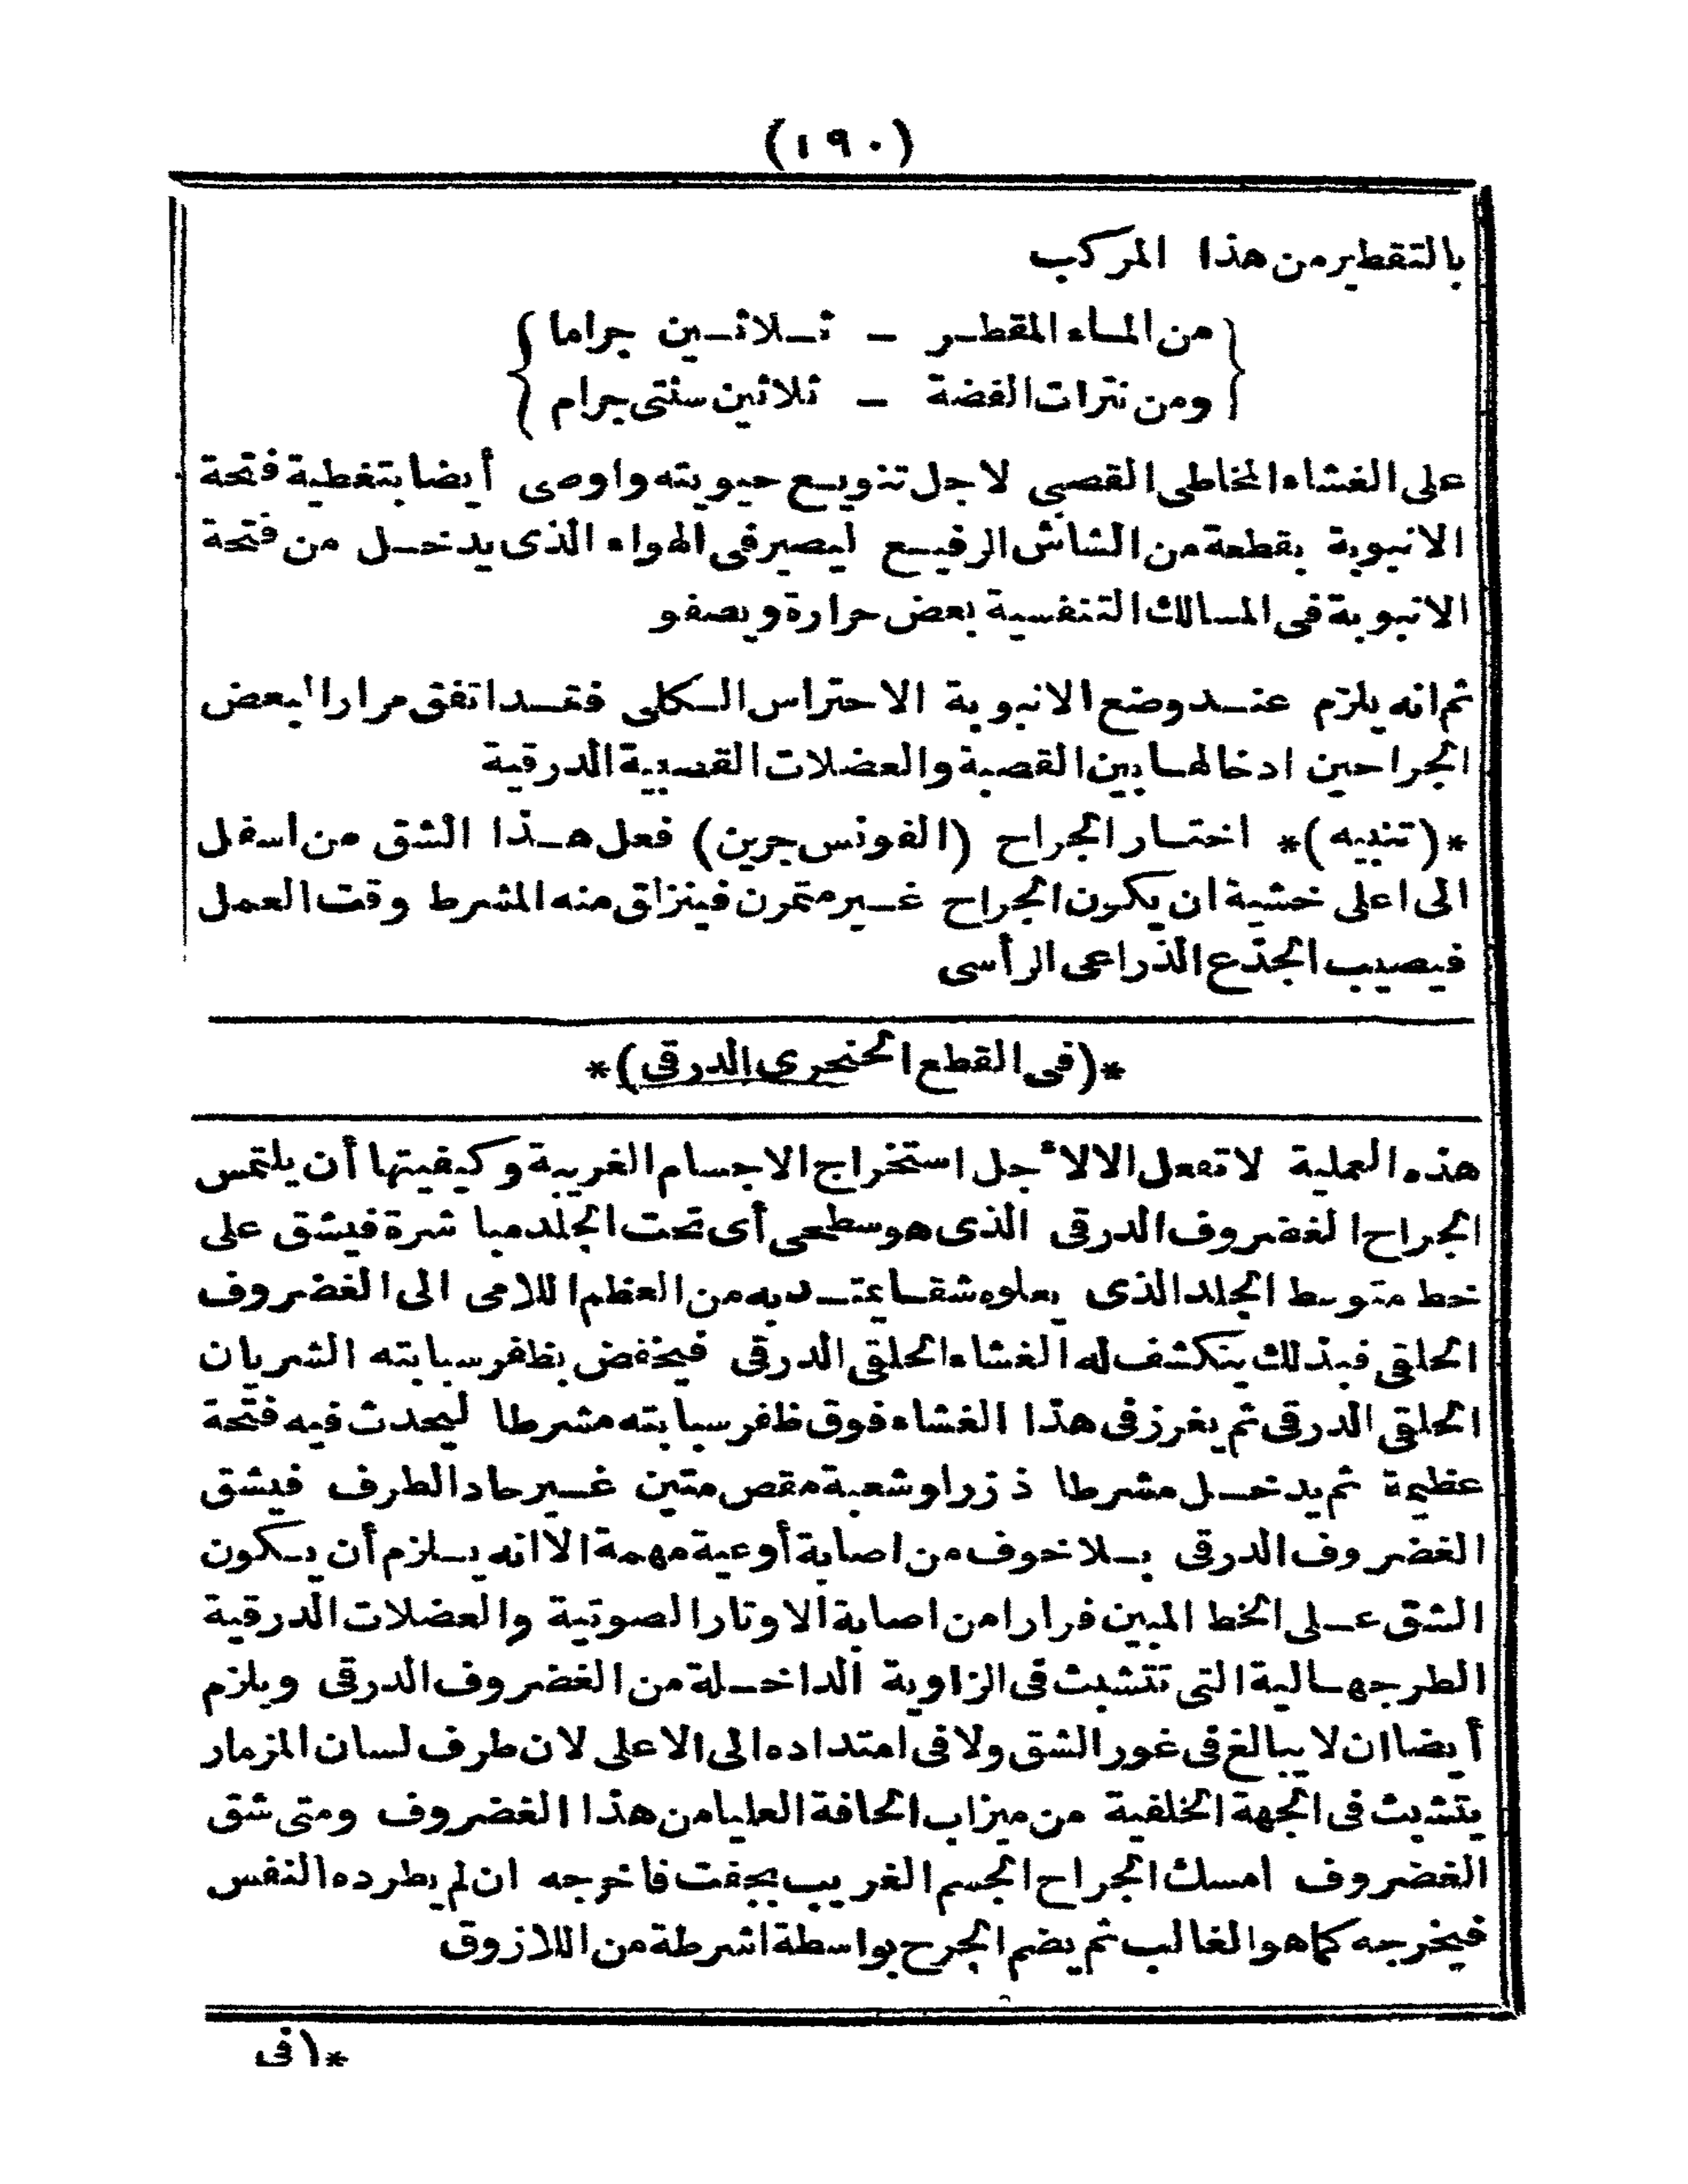 (١٩٠)
بالتقطير من هذا المركب
{من الماء المقطر – ثلاثين جراما}
{ومن نترات الفضة – ثلاثين سنتى جرام}
على الغشاء المخاطى القصبى لاجل تنويع حيويته واوصى أيضا بتغطية فتحة
الانبوبة بقطعة من الشاش الرفيع ليصير فى الهواء الذى يدخل من فتحة
الانبوبة فى المسالك التنفسية بعض حرارة ويصفو
ثم انه يلزم عند وضع الانبوبة الاحتراس الكلى فقد اتفق مرارا لبعض
الجراحين ادخالها بين القصبة والعضلات القصبية الدرقية
*(تنبيه)* اختار الجراح (الفونس جرين) فعل هذا الشق من اسفل
الى اعلى خشية ان يكون الجراح غير متمرن فينزلق منه المشرط وقت العمل
فيصيب الجذع الذراعى الرأسى
*(فى القطع الحنجرى الدرقى)*
هذه العملية لا تفعل الا لأجل استخراج الاجسام الغريبة وكيفيتها أن يلتمس
الجراح الغضروف الدرقى الذى هو سطحى أى تحت الجلد مباشرة فيشق على
خط متوسط الجلد الذى يعلوه شقا يمتد به من العظم اللامى الى الغضروف
الحلقى فبذلك ينكشف له الغشاء الحلقى الدرقى فيخفض بظفر سبابته الشريان
الحلقى الدرقى ثم يغرز فى هذا الغشاء فوق ظفر سبابته مشرطا ليحدث فيه فتحة
عظيمة ثم يدخل مشرطا ذ زر او شعبة مقص متين غير حاد الطرف فيشق
الغضروف الدرقى بلا خوف من اصابة أوعية مهمة الا انه يلزم أن يكون
الشق على الخط المبين فرارا من اصابة الاوتار الصوتية والعضلات الدرقية
الطرجهالية التى تتشبث فى الزاوية الداخلة من الغضروف الدرقى ويلزم
أيضا ان لا يبالغ فى غور الشق ولا فى امتداده الى الاعلى لان طرف لسان المزمار
يتشبث فى الجهة الخلفية من ميزاب الحافة العليا من هذا الغضروف ومتى شق
الغضروف امسك الجراح الجسم الغريب بجفت فاخرجه ان لم يطرده النفس
فيخرجه كما هو الغالب ثم يضم الجرح بواسطة اشرطة من اللازوق
*(فى